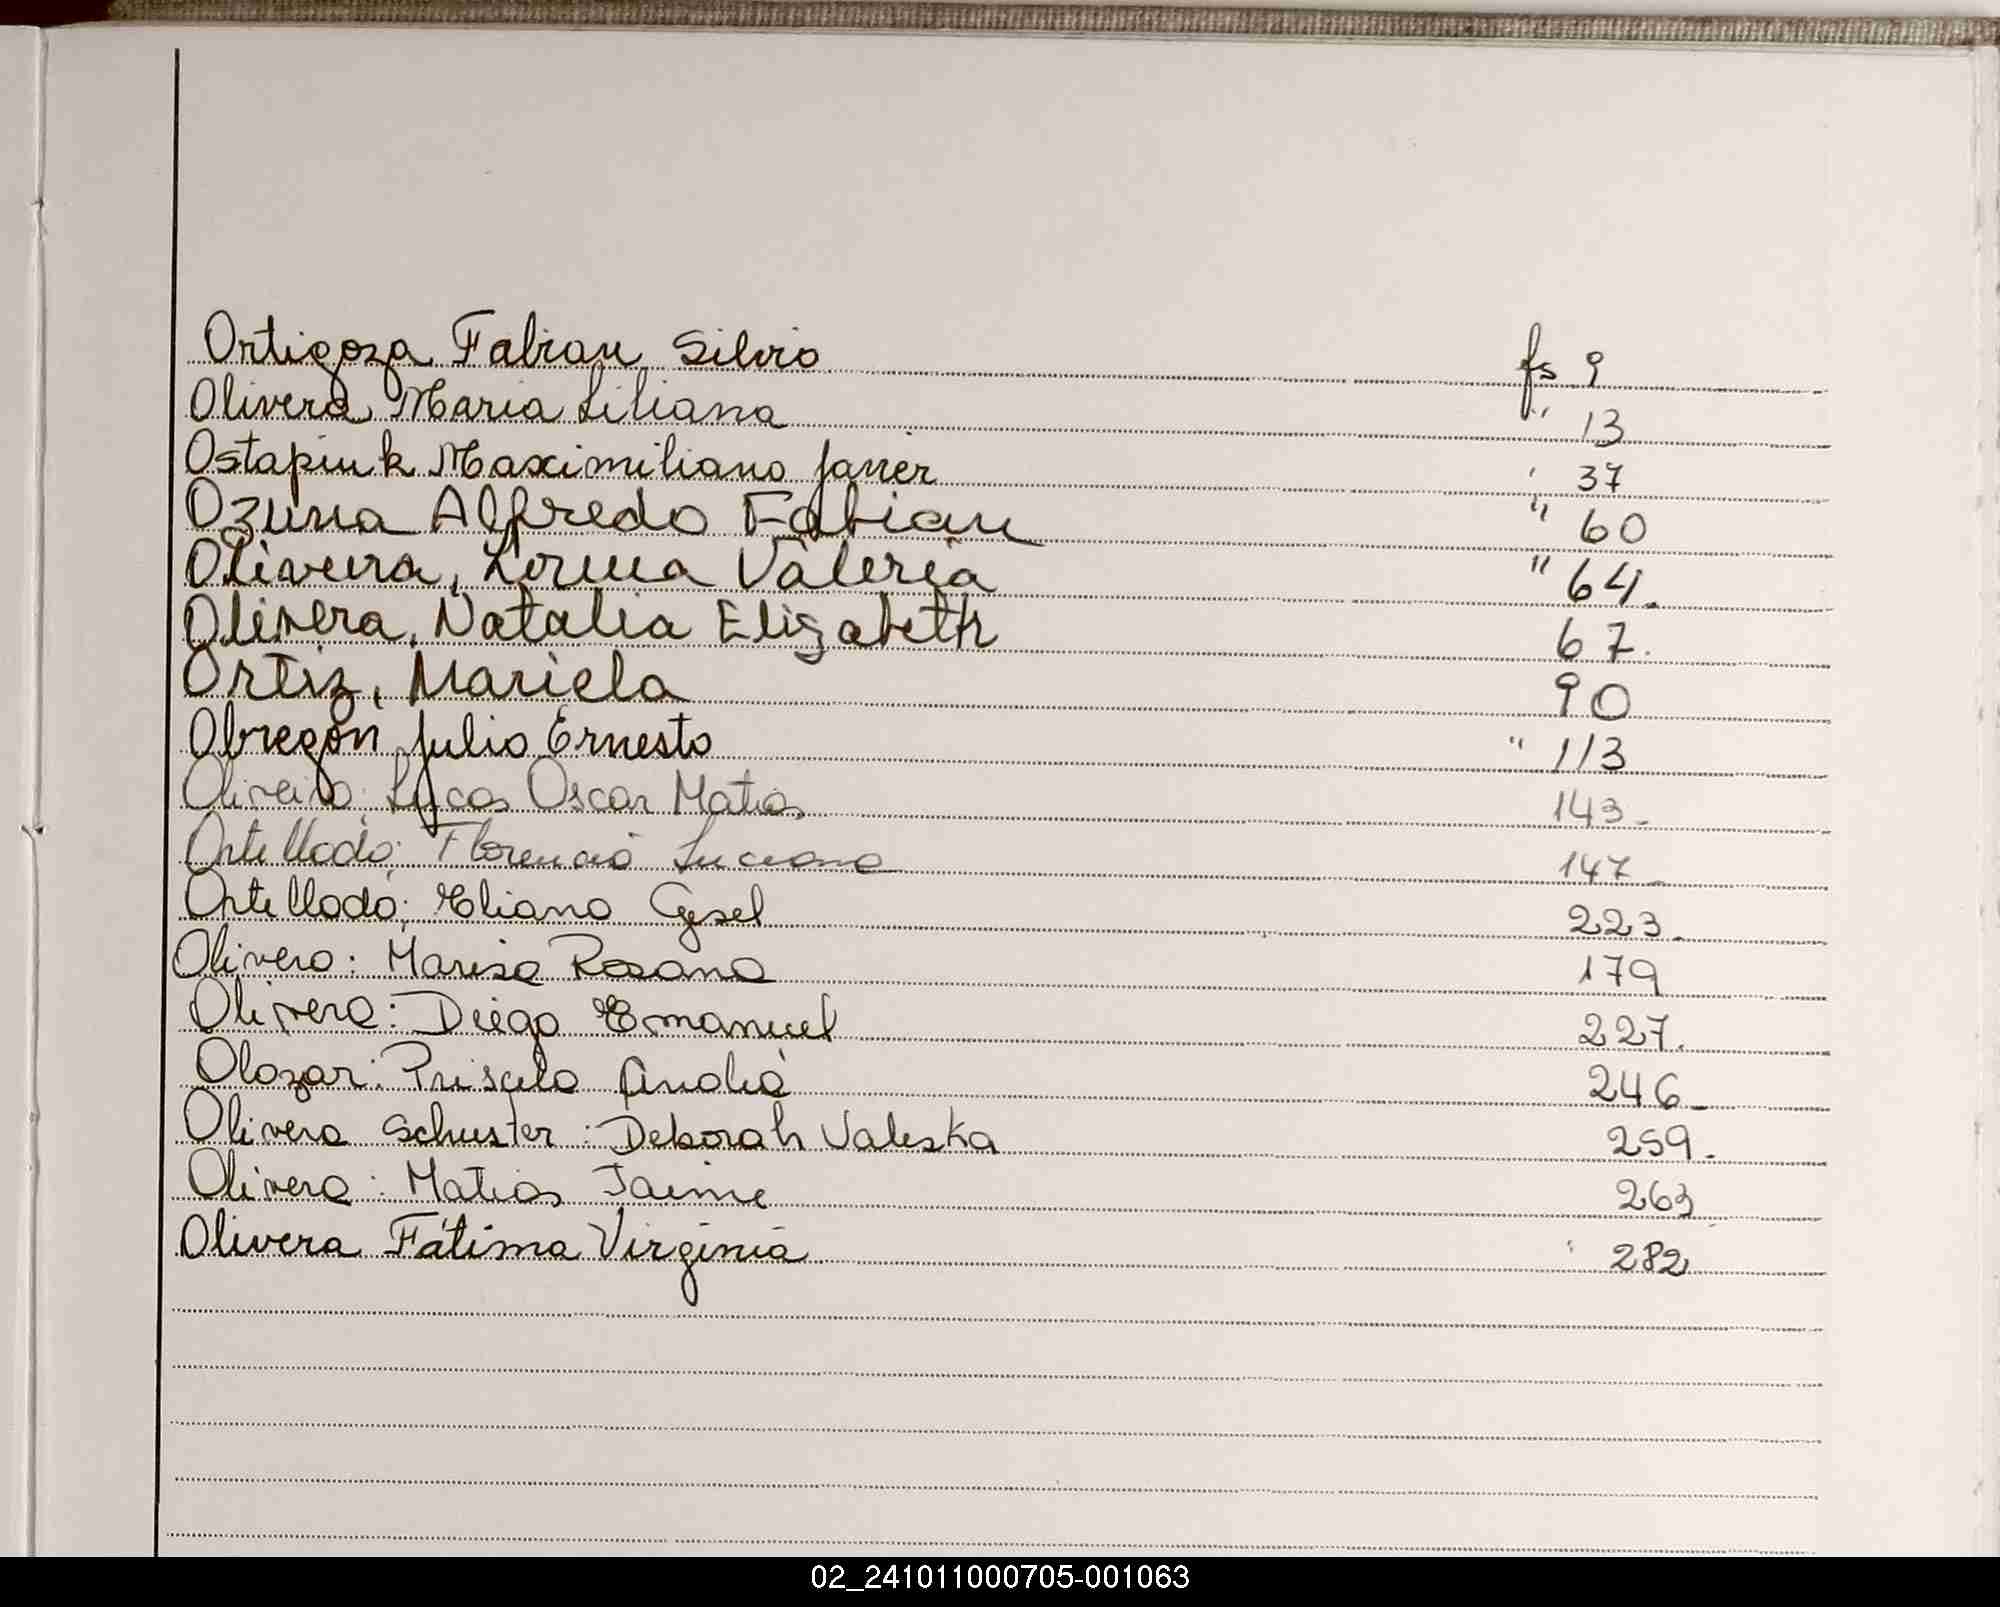 Ortigoza Fabian Silvio fs 9
Olivera Maria Liliana " 13
Ostapiuk Maximiliano Javier " 37
Ozuna Alfredo Fabian " 60
Oliveira, Lorena Valeria " 64.
Olivera, Natalia Elizabeth 67.
Ortiz, Mariela 90
Obregón Julio Ernesto " 113
Oliveira: Lucas Oscar Matias 143-
Ortellado: Florencia Luciana 147-
Ortellado: Eliana Gisel 223-
Olivera: Marisa Rosana 179
Olivera: Diego Emanuel 227.
Olazar: Priscila Analia 246-
Olivera Schuster: Deborah Valeska 259-
Olivera: Matias Jaime 263
Olivera Fátima Virginia " 282
02_241011000705-001063